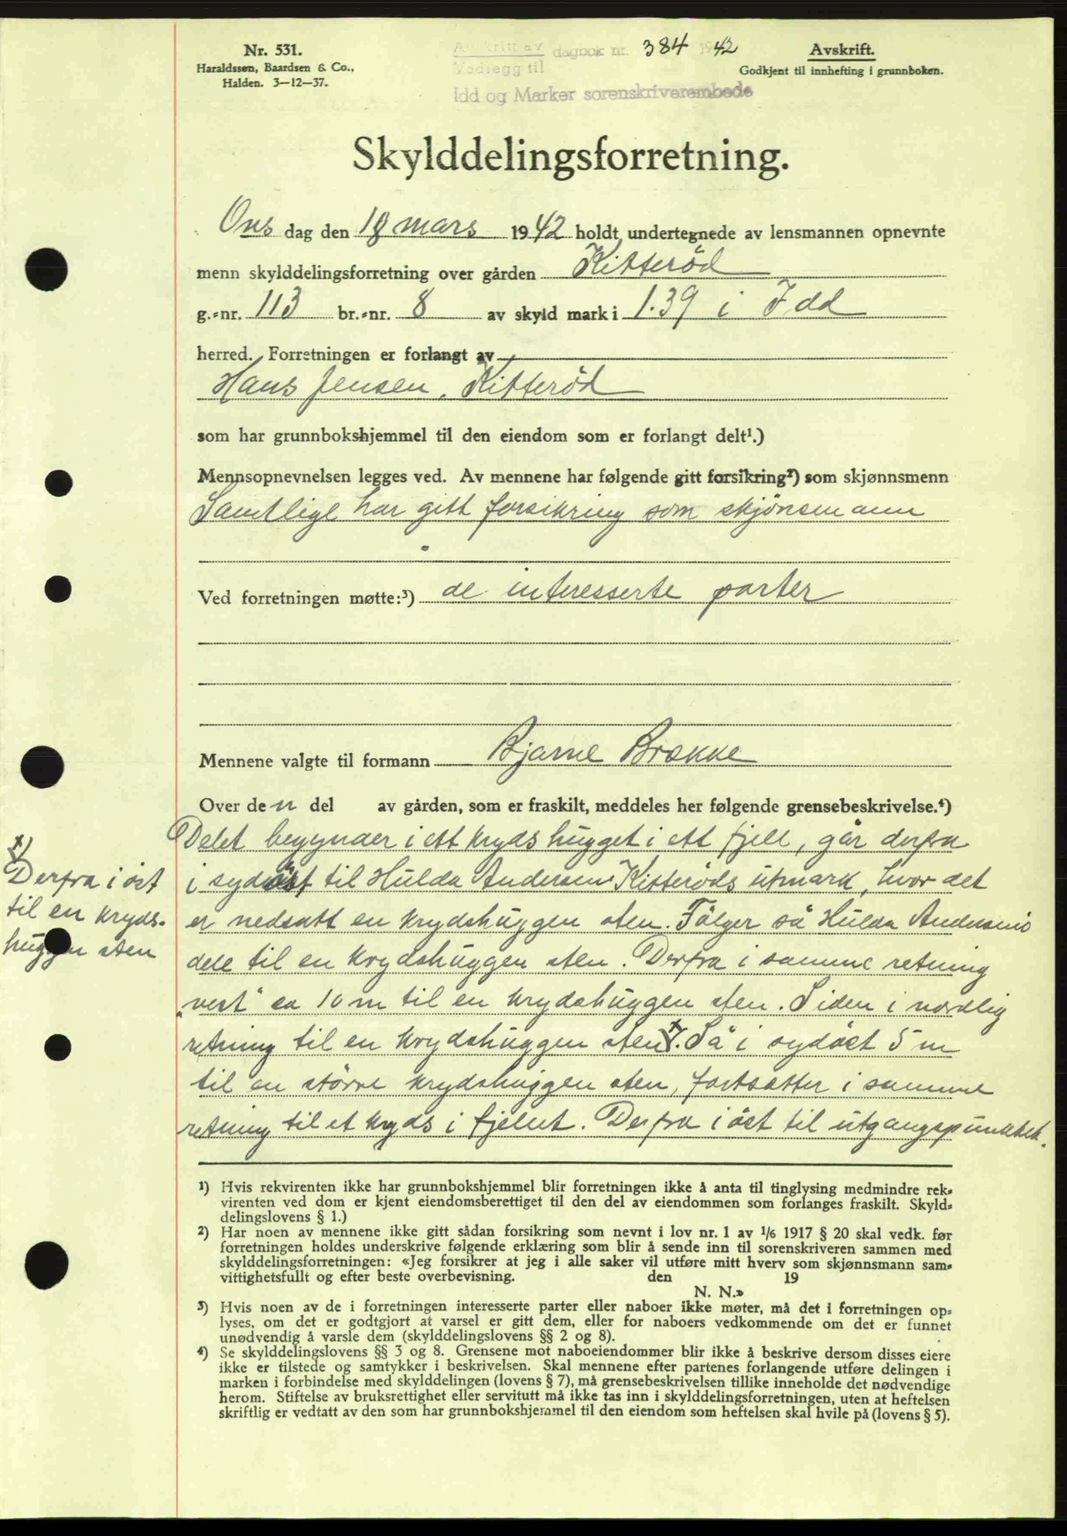 Nr. 531.
Haraldssen, Baardsen & Co.,
Halden. 3—12—37.
Avskrift av dagbok nr. 384 1942
Vedlegg til
Idd og Marker sorenskriverembede
Avskrift.
Godkjent til innhefting i grunnboken.
Skylddelingsforretning.
Ons dag den 18 mars 1942 holdt undertegnede av lensmannen opnevnte
menn skylddelingsforretning over gården Kitterød
g.-nr. 113 br.-nr. 8 av skyld mark i 1.39 i Idd
herred. Forretningen er forlangt av
Hans Jensen, Kitterød
som har grunnbokshjemmel til den eiendom som er forlangt delt¹.)
Mennsopnevnelsen legges ved. Av mennene har følgende gitt forsikring²) som skjønnsmenn
Samtlige har gitt forsikring som skjönsmann
Ved forretningen møtte:³) de interesserte parter
Mennene valgte til formann Bjarne Brække
Over den del av gården, som er fraskilt, meddeles her følgende grensebeskrivelse.⁴)
Delet begynder i ett kryds hugget i ett fjell, går derfra
i sydöst til Hulda Andersen Kitteröds utmark, hvor det
er nedsatt en krydshuggen sten. Fölger så Hulda Andersens
dele til en krydshuggen sten. Derfra i samme retning
"vest" ca 10 m til en krydshuggen sten. Siden i nordlig
retning til en krydshuggen sten x). Så i sydöst 5 m
til en större krydshuggen sten, fortsetter i samme
retning til et kryds i fjellet. Derfra i öst til utgangspunktet.
x)
Derfra i öst
til en kryds-
huggen sten
¹) Hvis rekvirenten ikke har grunnbokshjemmel blir forretningen ikke å anta til tinglysing medmindre rek-
virenten ved dom er kjent eiendomsberettiget til den del av eiendommen som forlanges fraskilt. Skyld-
delingslovens § 1.)
²) Har noen av mennene ikke gitt sådan forsikring som nevnt i lov nr. 1 av 1/6 1917 § 20 skal vedk. før
forretningen holdes underskrive følgende erklæring som blir å sende inn til sorenskriveren sammen med
skylddelingsforretningen: «Jeg forsikrer at jeg i alle saker vil utføre mitt hverv som skjønnsmann sam-
vittighetsfullt og efter beste overbevisning. den 19
N. N.»
³) Hvis noen av de i forretningen interesserte parter eller naboer ikke møter, må det i forretningen op-
lyses, om det er godtgjort at varsel er gitt dem, eller for naboers vedkommende om det er funnet
unødvendig å varsle dem (skylddelingslovens §§ 2 og 8).
⁴) Se skylddelingslovens §§ 3 og 8. Grensene mot naboeiendommer blir ikke å beskrive dersom disses eiere
ikke er tilstede og samtykker i beskrivelsen. Skal mennene efter partenes forlangende utføre delingen i
marken i forbindelse med skylddelingen (lovens § 7), må grensebeskrivelsen tillike inneholde det nødvendige
herom. Stiftelse av bruksrettighet eller servitutt må ikke tas inn i skylddelingsforretningen, uten at heftelsen
skriftlig er vedtatt av den som har grunnbokshjemmel til den eiendom som heftelsen skal hvile på (lovens § 5).